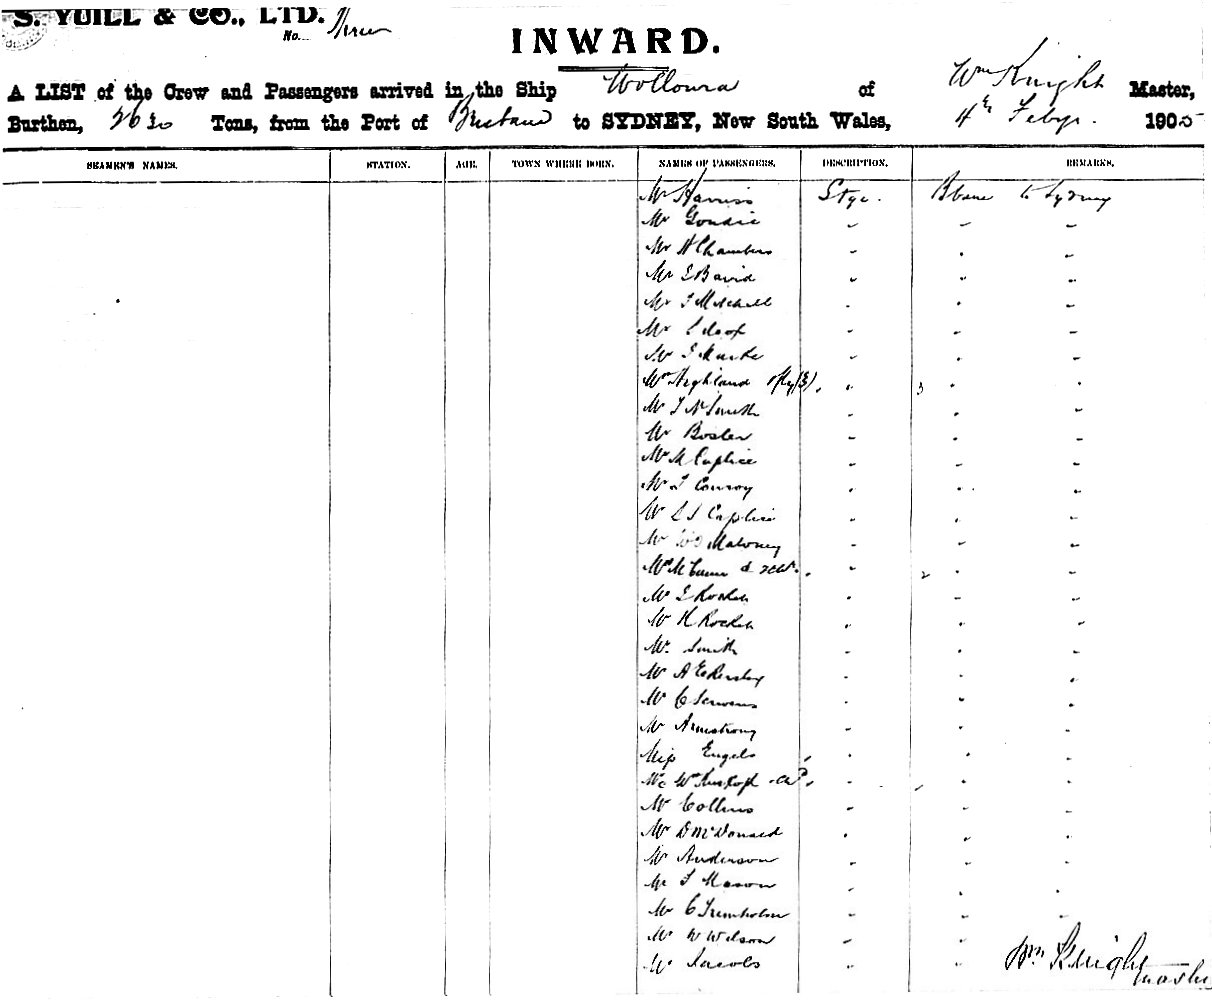 S. YUILL & CO., LTD.
No. Three
INWARD.
A LIST of the Crew and Passengers arrived in the Ship Wollowra of Wm Knight Master,
Burthen, 2630 Tons, from the Port of Brisbane to SYDNEY, New South Wales, 4th Feby. 1905
SEAMEN'S NAMES. STATION. AGE. TOWN WHERE BORN. NAMES OF PASSENGERS. DESCRIPTION. REMARKS.
Mr Harriss Stge. Bbane to Sydney
Mr Goudie " " "
Mr H Chambers " " "
Mr E David " " "
Mr J Mitchell " " "
Mr " " "
Mr " " "
Highland " 3 " "
Mr J N Smith " " "
Mr Bosler " " "
Mr M Caplice " " "
Mr T Conroy " " "
Mr Caplice " " "
Mr Maloney " " "
& " 2 " "
Mr E " " "
Mr H " " "
Mr Smith " " "
Mr A E " " "
Mr C " " "
Mr Armstrong " " "
Miss Engels " " "
" " "
Mr Collins " " "
Mr D McDonald " " "
Mr Anderson " " "
Mr J Mason " " "
Mr C Trenholm " " "
Mr W Wilson " "
Mr Jacobs " " Wm Knight
Master